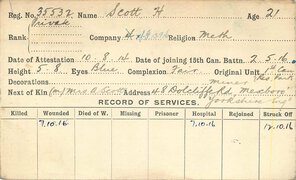 Reg. No. 35532 Name Scott H Age 21
Rank Private Company Religion Meth
Date of Attestation 10.8.14 Date of joining 15th Can. Battn. 2.5.16
Height 5-8 Eyes Blue Complexion Fair Original Unit
Decorations Miner
Next of Kin (m) Mrs A Scott Address 48 Dolcliffe Rd, Mexboro'
Yorkshire Eng
RECORD OF SERVICES.
Killed Wounded Died of W. Missing Prisoner Hospital Rejoined Struck Off
7.10.16 7.10.16 12.10.16